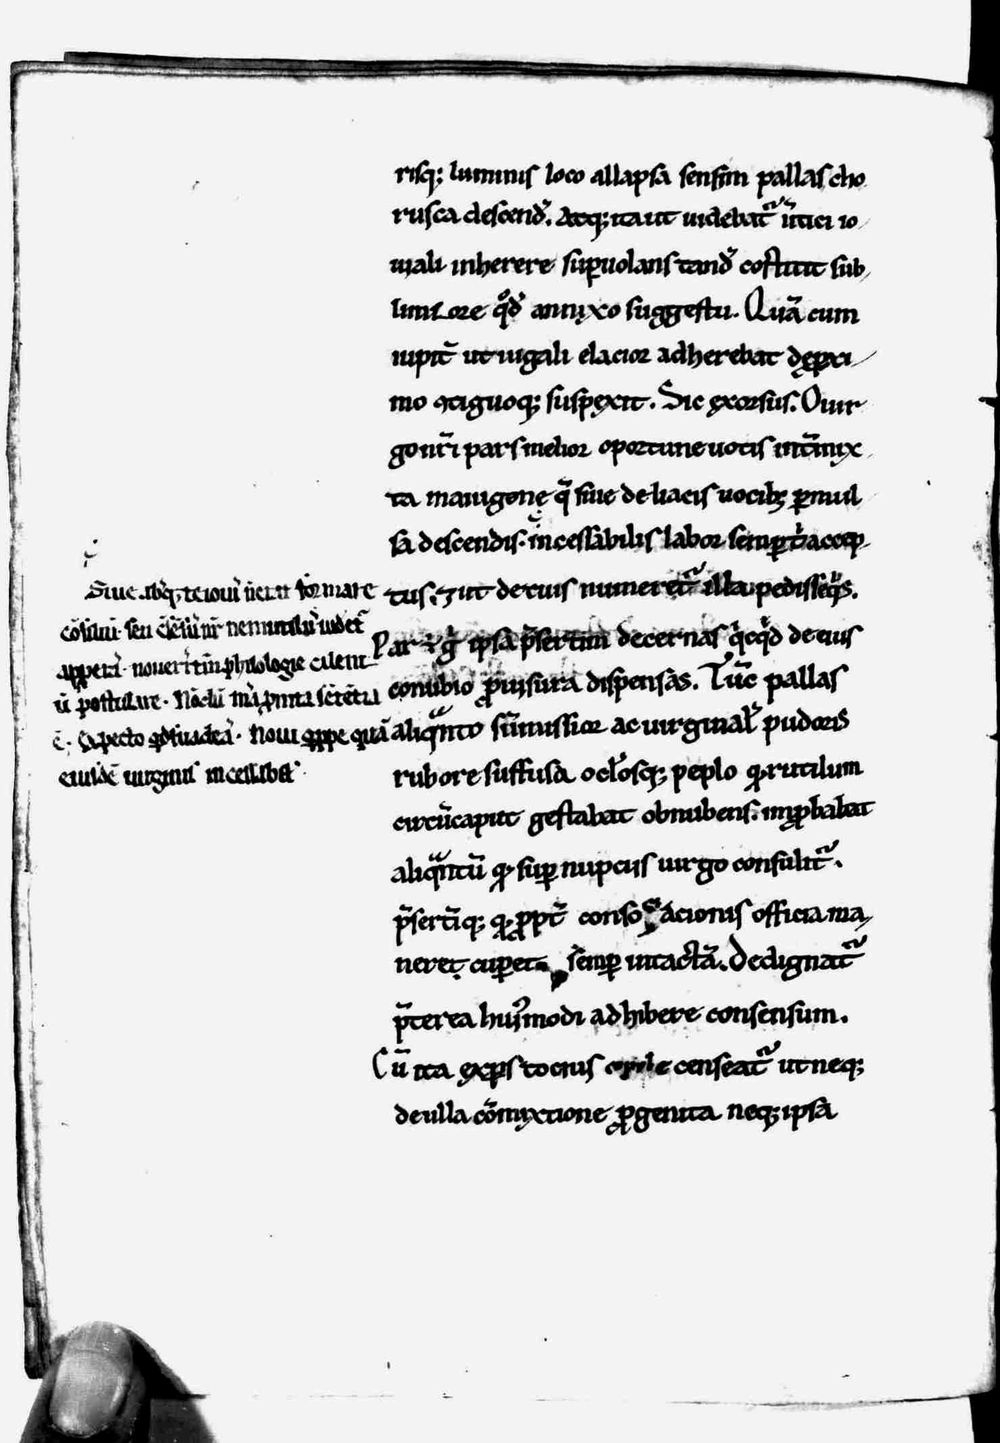 risq; luminis loco allapsa sensim pallas cho
rusca descend̃. Atq; ita ut uidebat᷑ ũtici io
uiali inherere suꝑuolans tand̃ costitit sub
limiore qͦd̃ annixo suggestu. Quã cum
iupit̃ ut iugali elacior adherebat dep̱xi
mo ꝯtiguoq; suspexit. Sic exorsus. O uir
go nr̃i pars melior oportune uotis int̃mix
ta mauigene q̃ siue de liacis uocib; ꝑmul
sa descendis. incessabilis labor semꝑ accep
tus. ⁊ ut de tuis numeret᷑ illa pedisseq̃s.
Par ẽ g̃ ipsa p̃sertim decernas q̃cq̃d de eius
conubio ꝓuisura dispensas. Tũc pallas
aliq̃nto sũmissior ac uirginal̃ pudoris
rubore suffusa ocl̃osq; peplo qđ rutilum
circũcaput gestabat obnubens. inꝓbabat
aliq̃ntũ qđ suꝑ nupciis uirgo consulit᷑.
p̃sert̃iq; ꝓpt̃ consociacionis officia ma
neret cuperet semꝑ intactã. Dedignat᷑
p̃terea huj̃modi adhibere consensum.
Cũ ita exꝑs tocius censeat᷑ ut neq;
de ulla cõmixtione ꝓgenita neq; ipsa
Siue absq; te ioui ñ erat formare
cõsiliũ seu
appetã. nouer̃t philologie cilent
ũ postulare.
ẽ. Expecto qđ suadeã. Noui quippe quã
eiusdẽ uirginis